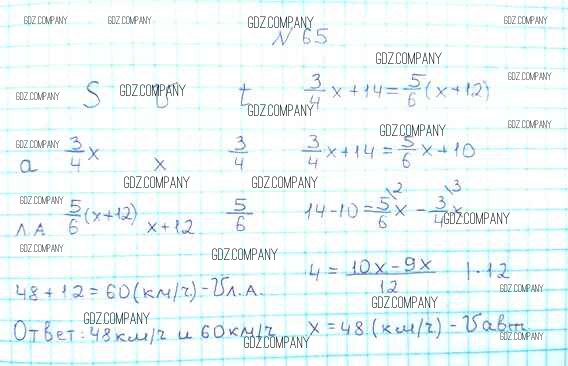 N 65
S V t 3/4 x + 14 = 5/6 (x + 12)
а 3/4 x x 3/4 3/4 x + 14 = 5/6 x + 10
л.а. 5/6 (x + 12) x + 12 5/6 14 - 10 = 5/6 \2 x - 3/4 \3 x
4 = 10x - 9x / 12 | · 12
48 + 12 = 60 (км/ч) - Vл.а.
Ответ: 48 км/ч и 60 км/ч x = 48 (км/ч) - Vавт
GDZ.COMPANY GDZ.COMPANY GDZ.COMPANY GDZ.COMPANY
GDZ.COMPANY
GDZ.COMPANY
GDZ.COMPANY GDZ.COMPANY
GDZ.COMPANY
GDZ.COMPANY GDZ.COMPANY
GDZ.COMPANY
GDZ.COMPANY GDZ.COMPANY
GDZ.COMPANY GDZ.COMPANY
GDZ.COMPANY GDZ.COMPANY
GDZ.COMPANY
GDZ.COMPANY
GDZ.COMPANY
GDZ.COMPANY GDZ.COMPANY
GDZ.COMPANY